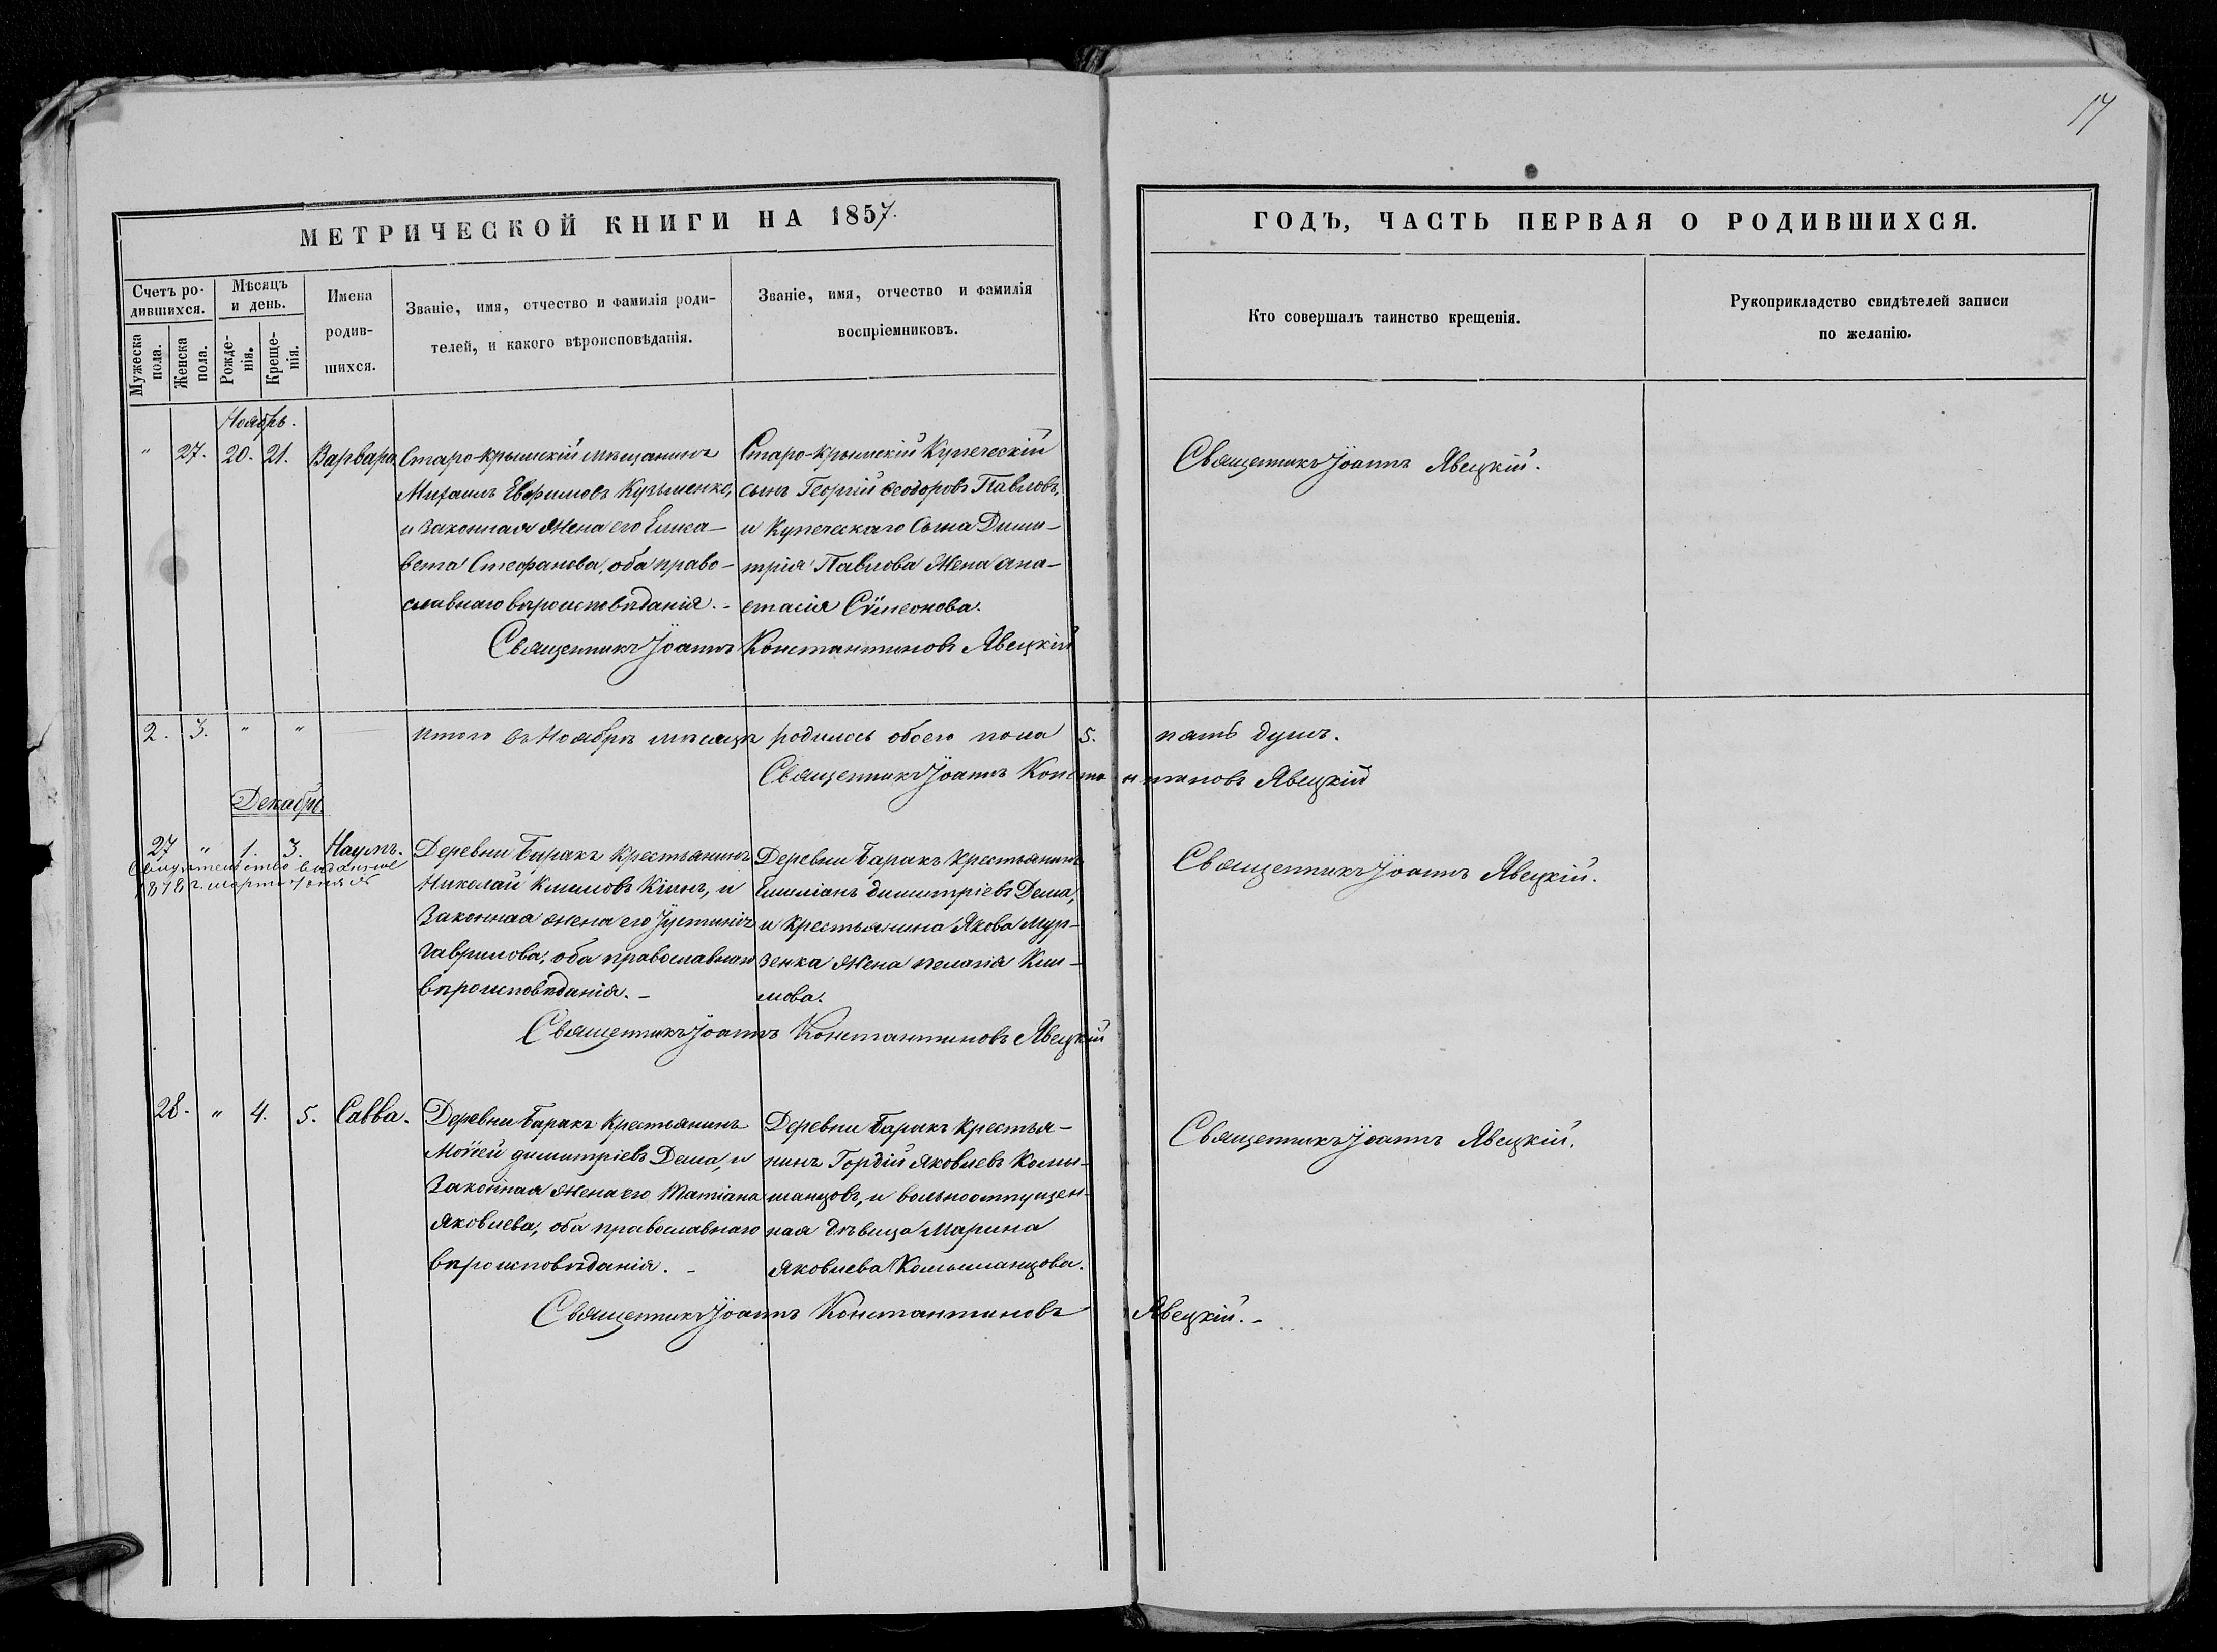 17
МЕТРИЧЕСКОЙ КНИГИ НА 1857.
ГОДЪ, ЧАСТЬ ПЕРВАЯ О РОДИВШИХСЯ.
Счетъ ро-
дившихся.
Мужеска
пола.
Женска
пола.
Мѣсяцъ
и день.
Рожде-
нія.
Креще-
нія.
Имена
родив-
шихся.
Званіе, имя, отчество и фамилія роди-
телей, и какого вѣроисповѣданія.
Званіе, имя, отчество и фамилія
воспріемниковъ.
Кто совершалъ таинство крещенія.
Рукоприкладство свидѣтелей записи
по желанію.
Ноябрь.
" 27. 20. 21. Варвара
Старо-крымскій мѣщанинъ
Михаилъ Евфимовъ Кузьменко,
и законная жена его Елиса-
вета Стефанова, оба право-
славнаго вѣроисповѣданія. -
Старо-крымскій Купеческій
сынъ Георгій Ѳеодоровъ Павловъ,
и Купеческаго Сына Дими-
трія Павлова Жена Ана-
стасія Сѵмеонова.
Священникъ Іоаннъ Явецкій.
Священникъ Іоаннъ Константиновъ Явецкій
2. 3. " " Итого въ Ноябрѣ мѣсяцѣ родилось обоего пола 5. пять душъ.
Священникъ Іоаннъ Константиновъ Явецкій
Декабрь
27 " 1. 3. Наумъ.
Свидѣтельство выданное
1878 г. марта
Деревни Баракъ Крестьянинъ
Николай Климовъ, и
Законная жена его Іустинія
Гаврилова, оба православнаго
вѣроисповѣданія. -
Деревни Баракъ Крестьянинъ
димитріевъ Дема,
и Крестьянина Якова Мур-
зенка Жена пелагія Кли-
мова.
Священникъ Іоаннъ Явецкій.
Священникъ Іоаннъ Константиновъ Явецкій
28. " 4. 5. Савва.
Деревни Баракъ Крестьянинъ
Моѵсей димитріевъ Дема, и
Законная Жена его Татіана
Яковлева, оба православнаго
вѣроисповѣданія. -
Деревни Баракъ Крестья-
нинъ Гордій Яковлевъ Колы-
манцовъ, и вольноотпущен-
ная дѣвица Марина
Яковлева Колыманцова.
Священникъ Іоаннъ Явецкій.
Священникъ Іоаннъ Константиновъ Явецкій. -